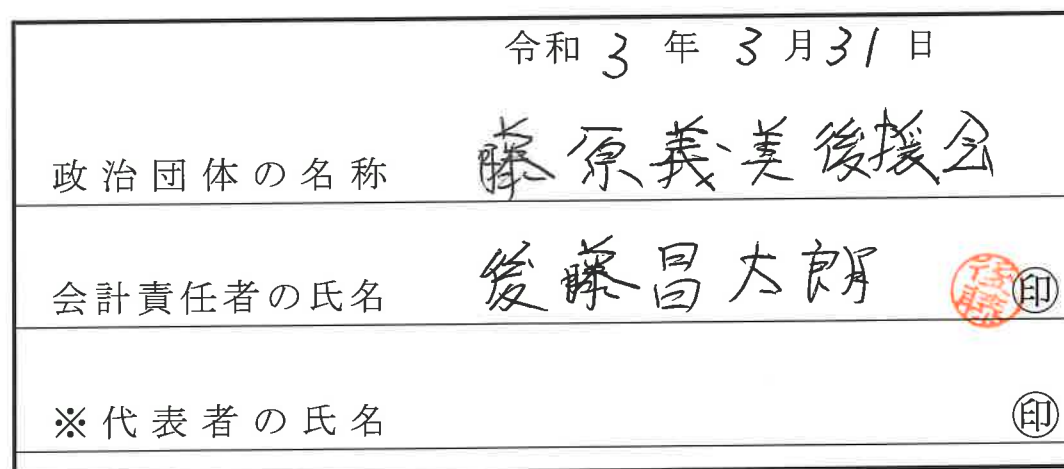 令和 3 年 3 月 31 日
政治団体の名称 藤原義美後援会
会計責任者の氏名 後藤昌太朗 後藤 ㊞
※代表者の氏名 ㊞